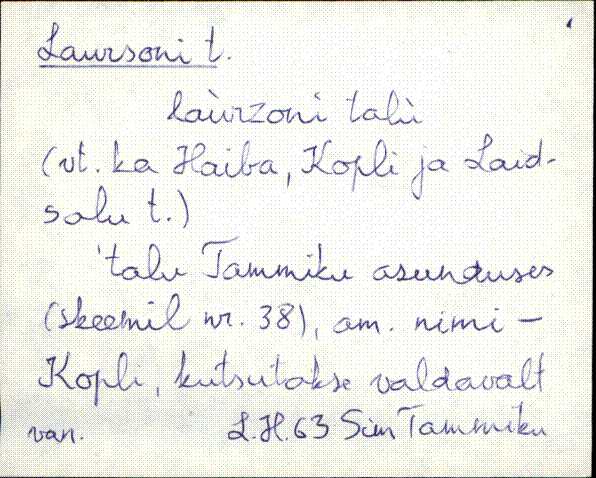 Laursoni t.
làurzoni talù
(vt. ka Haiba, Kopli ja Laid-
salu t.)
'talu Tammiku asunduses
(skeemil nr. 38), am. nimi –
Kopli, kutsutakse valdavalt
van. L.H.63 Sim Tammiku